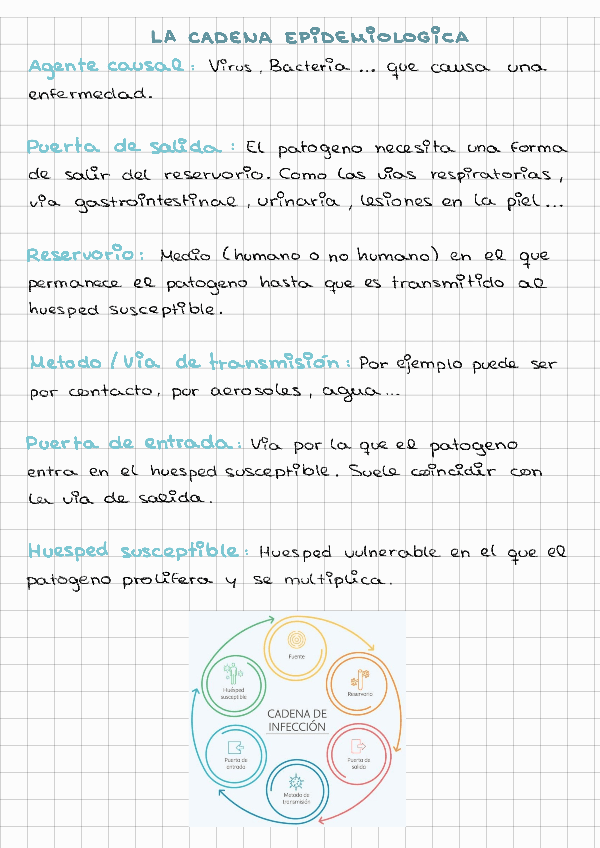 LA CADENA EPIDEMIOLOGICA
Agente causal: Virus, Bacteria ... que causa una
enfermedad.
Puerta de salida: El patogeno necesita una forma
de salir del reservorio. Como las vias respiratorias,
via gastrointestinal, urinaria, lesiones en la piel...
Reservorio: Medio (humano o no humano) en el que
permanece el patogeno hasta que es transmitido al
huesped susceptible.
Metodo / Via de transmisión: Por ejemplo puede ser
por contacto, por aerosoles, agua...
Puerta de entrada: Via por la que el patogeno
entra en el huesped susceptible. Suele coincidir con
la via de salida.
Huesped susceptible: Huesped vulnerable en el que el
patogeno prolifera y se multiplica.
Fuente
Huésped
susceptible
Reservorio
CADENA DE
INFECCIÓN
Puerta de
entrada
Puerta de
salida
Metodo de
transmisión